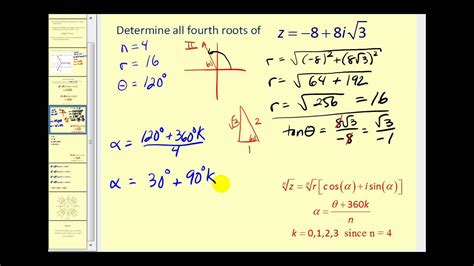 Determine all fourth roots of z = -8 + 8i√3
n = 4
r = 16
θ = 120°
II
60
r = √((-8)² + (8√3)²)
r = √(64 + 192)
r = √256 = 16
√3 2
60
1
tanθ = 8√3/-8 = √3/-1
α = (120° + 360°k)/4
α = 30° + 90°k
ⁿ√z = ⁿ√r [cos(α) + i sin(α)]
α = (θ + 360k)/n
k = 0,1,2,3 since n = 4